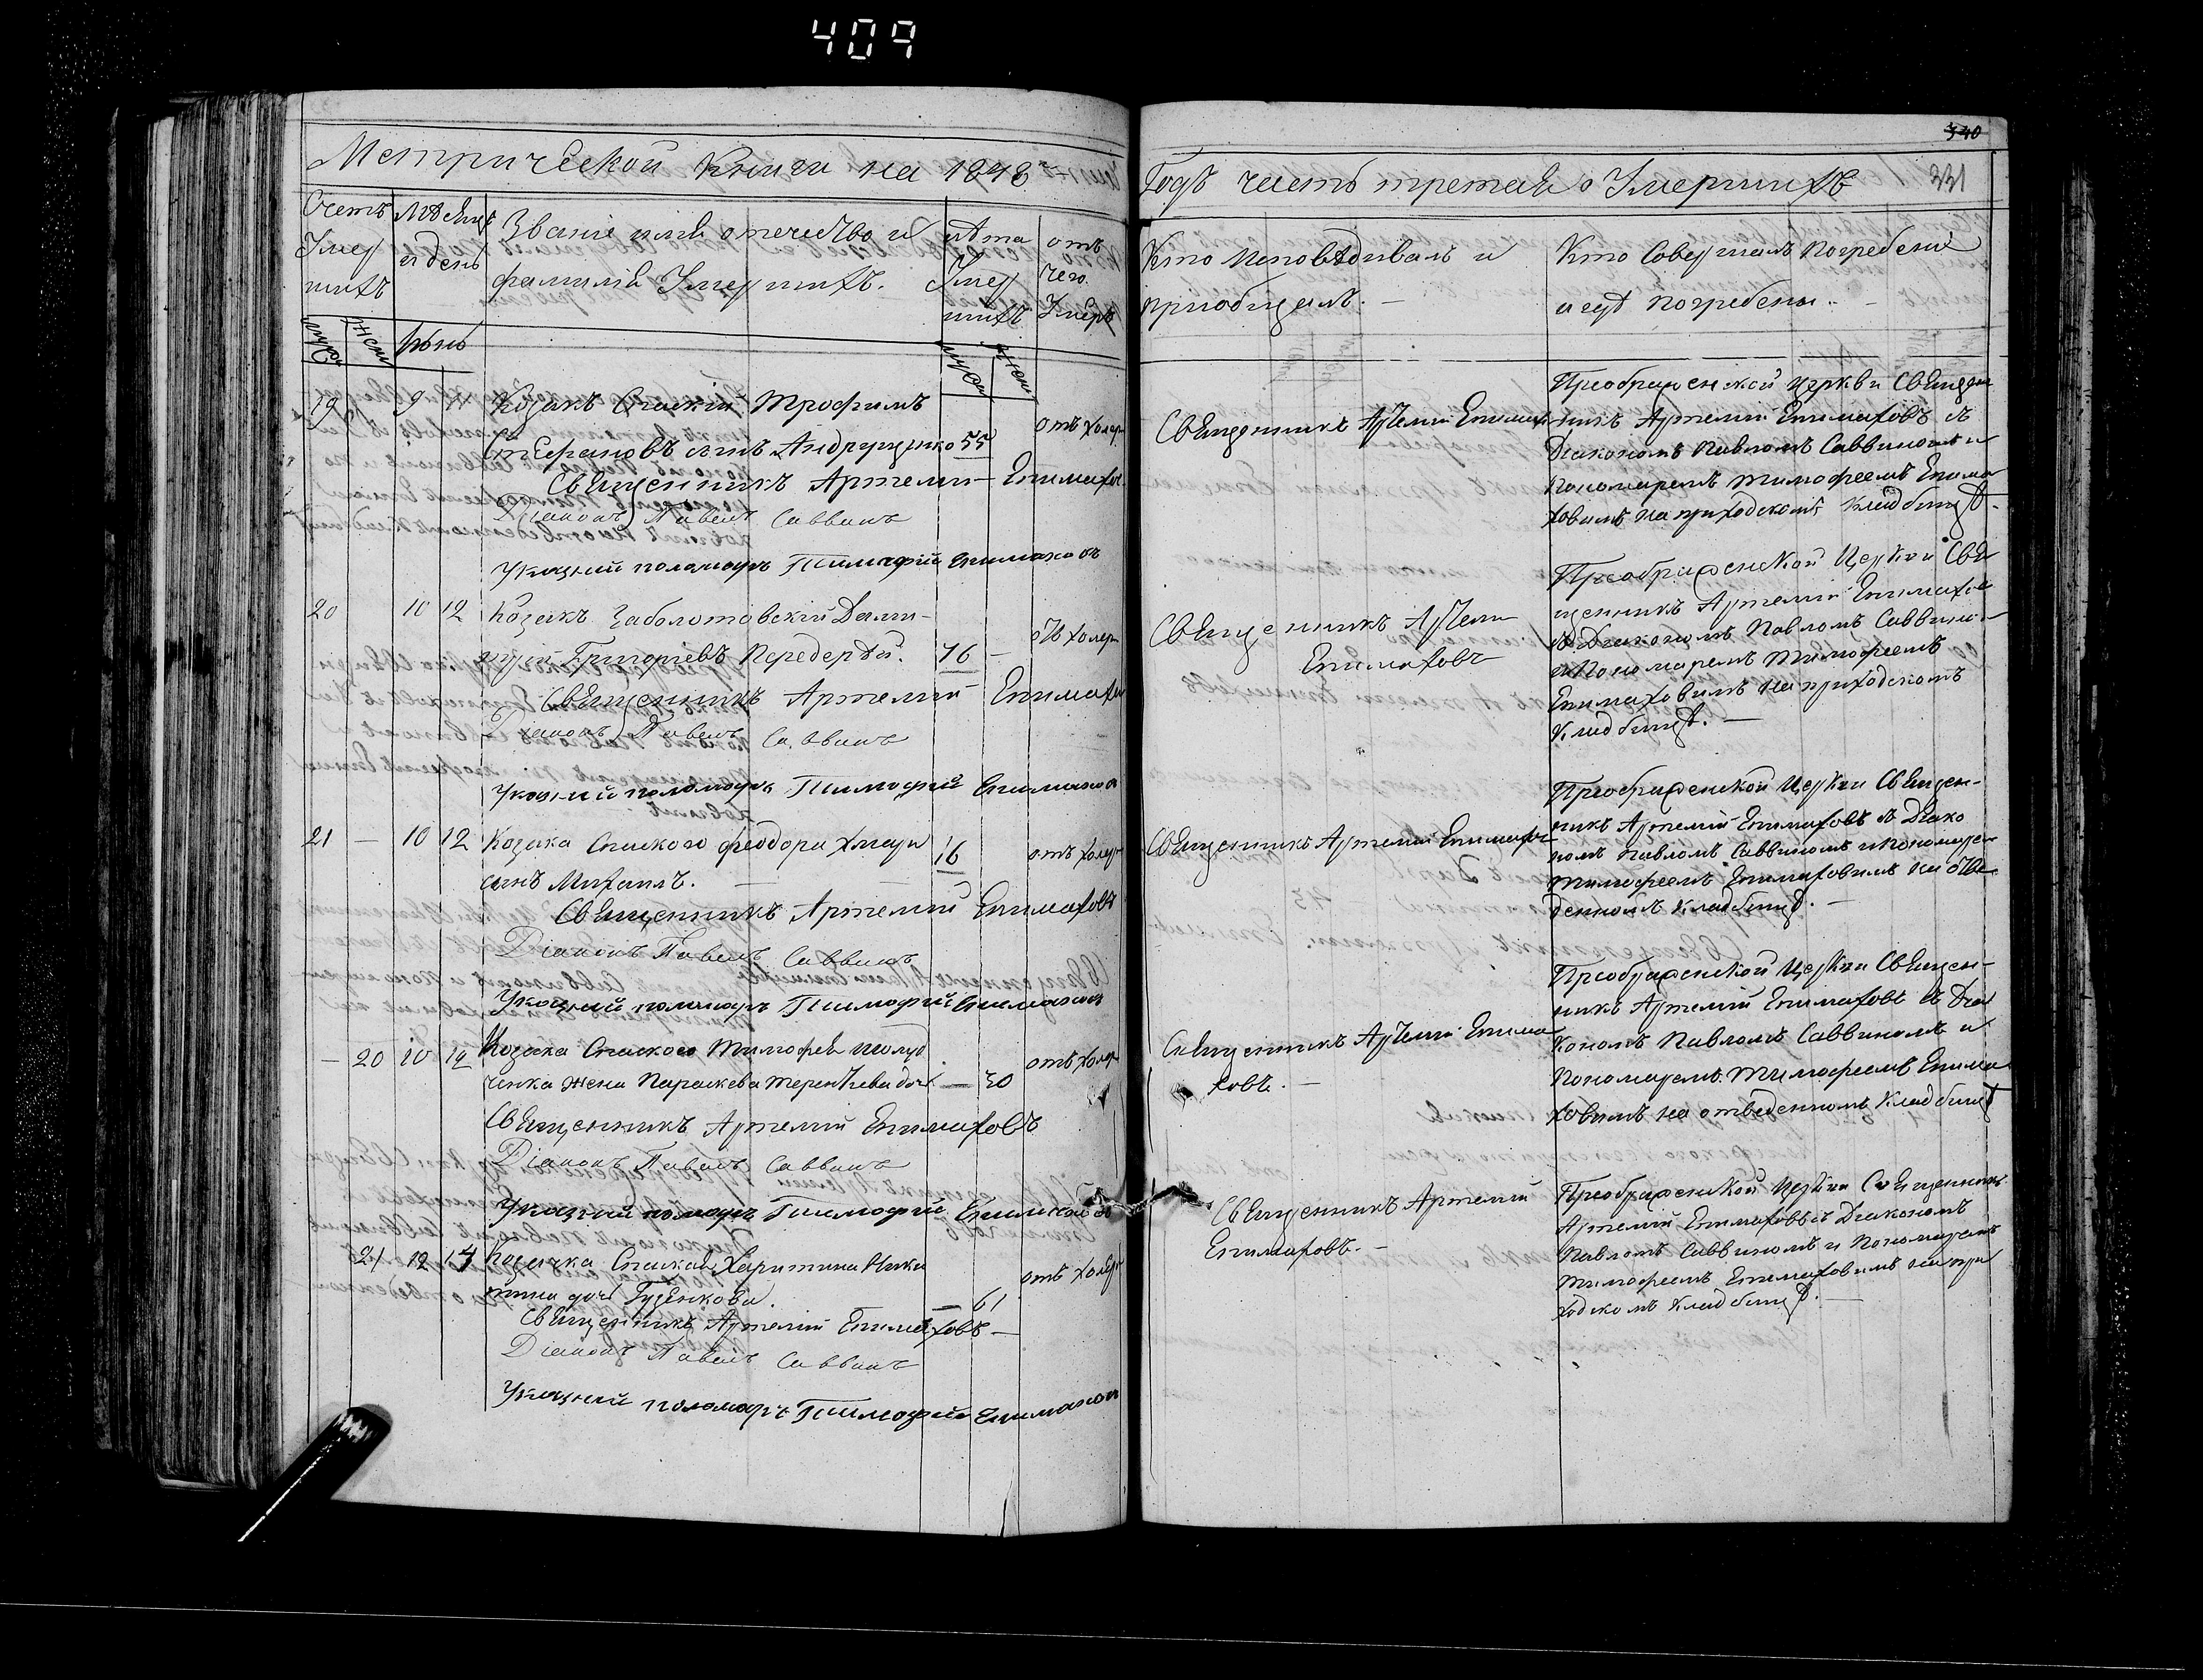 409
340
331
Метрической Книги на 1848й
Годъ часть третая о Умершихъ
Счетъ Умершихъ
Мѣсяцъ и день
Званіе имя отечество и фамилія Умершихъ.
лѣта Умершихъ
отъ чего Умеръ
Кто исповѣдывалъ и приобщалъ.
Кто Совершалъ Погребеніе и гдѣ погребены.
муж жен
Іюнь
муж жен
19 9 Козакъ Спаский Трофимъ
Стефановъ сынъ Андрущенко 55 отъ холеры
Священникъ Артемий Епимахов
Діаконъ Павелъ Саввинъ
Указний поламарь Тимофій Епимаховъ
Священникъ Артемий Епимахов
Преображенской церкви Священ
никъ Артемій Епимаховъ съ
Диакономъ Павломъ Саввинымъ и
Пономаремъ Тимофеемъ Епима
ховимъ на приходскомъ кладбищѣ.
20 10 12 Козакъ Заболотовскій
Григоріевъ Передерѣй. 76 отъ холеры
Священникъ Артемий Епимахов
Діаконъ Павелъ Саввинъ
Указний поламарь Тимофій Епимахов
Священникъ Артемий
Епимаховъ
Преображенской Церкви Свя
щенникъ Артемій Епимахов
съ Диакономъ Павломъ Саввиным
и Пономаремъ Тимофеемъ
Епимаховимъ на приходскомъ
Кладбищѣ.
21 — 10 12 Козака Спаского Феодора Хмары 16 отъ холеры
сынъ Михаилъ.
Священникъ Артемий Епимаховъ
Діаконъ Павелъ Саввинъ
Указний поламарь Тимофій Епимахов
Священникъ Артемій Епимахов
Преображенской Церкви Священ-
никъ Артемій Епимаховъ съ Диако
номъ Павломъ Саввиномъ и Пономарем
Тимофеемъ Епимаховимъ на отве
денномъ кладбищѣ.
— 20 10 12 Козака Спаского Тимофея
ченка жена Параскева Терентіева дочь — 30 отъ холер
Священникъ Артемий Епимаховъ
Діаконъ Павелъ Саввинъ
Указний поламарь Тимофій Епимахов
Священникъ Артемій Епима
ховъ.
Преображенской Церкви Священ-
никъ Артемій Епимаховъ съ Диа
кономъ Павломъ Саввиномъ и
Пономаремъ Тимофеемъ Епима
ховимъ на отведенномъ кладбищѣ
21 12 14 Козачка Спаская Харитина Ники
тина дочь Гузенкова. — 61 отъ холеры
Священникъ Артемий Епимаховъ —
Діаконъ Павелъ Саввинъ
Указний поламарь Тимофій Епимахов
Священникъ Артемий
Епимаховъ.
Преображенской Церкви Священникъ
Артемій Епимаховъ съ Диакономъ
Павломъ Саввиномъ и Пономаремъ
Тимофеемъ Епимаховимъ на при
ходскомъ кладбищѣ.